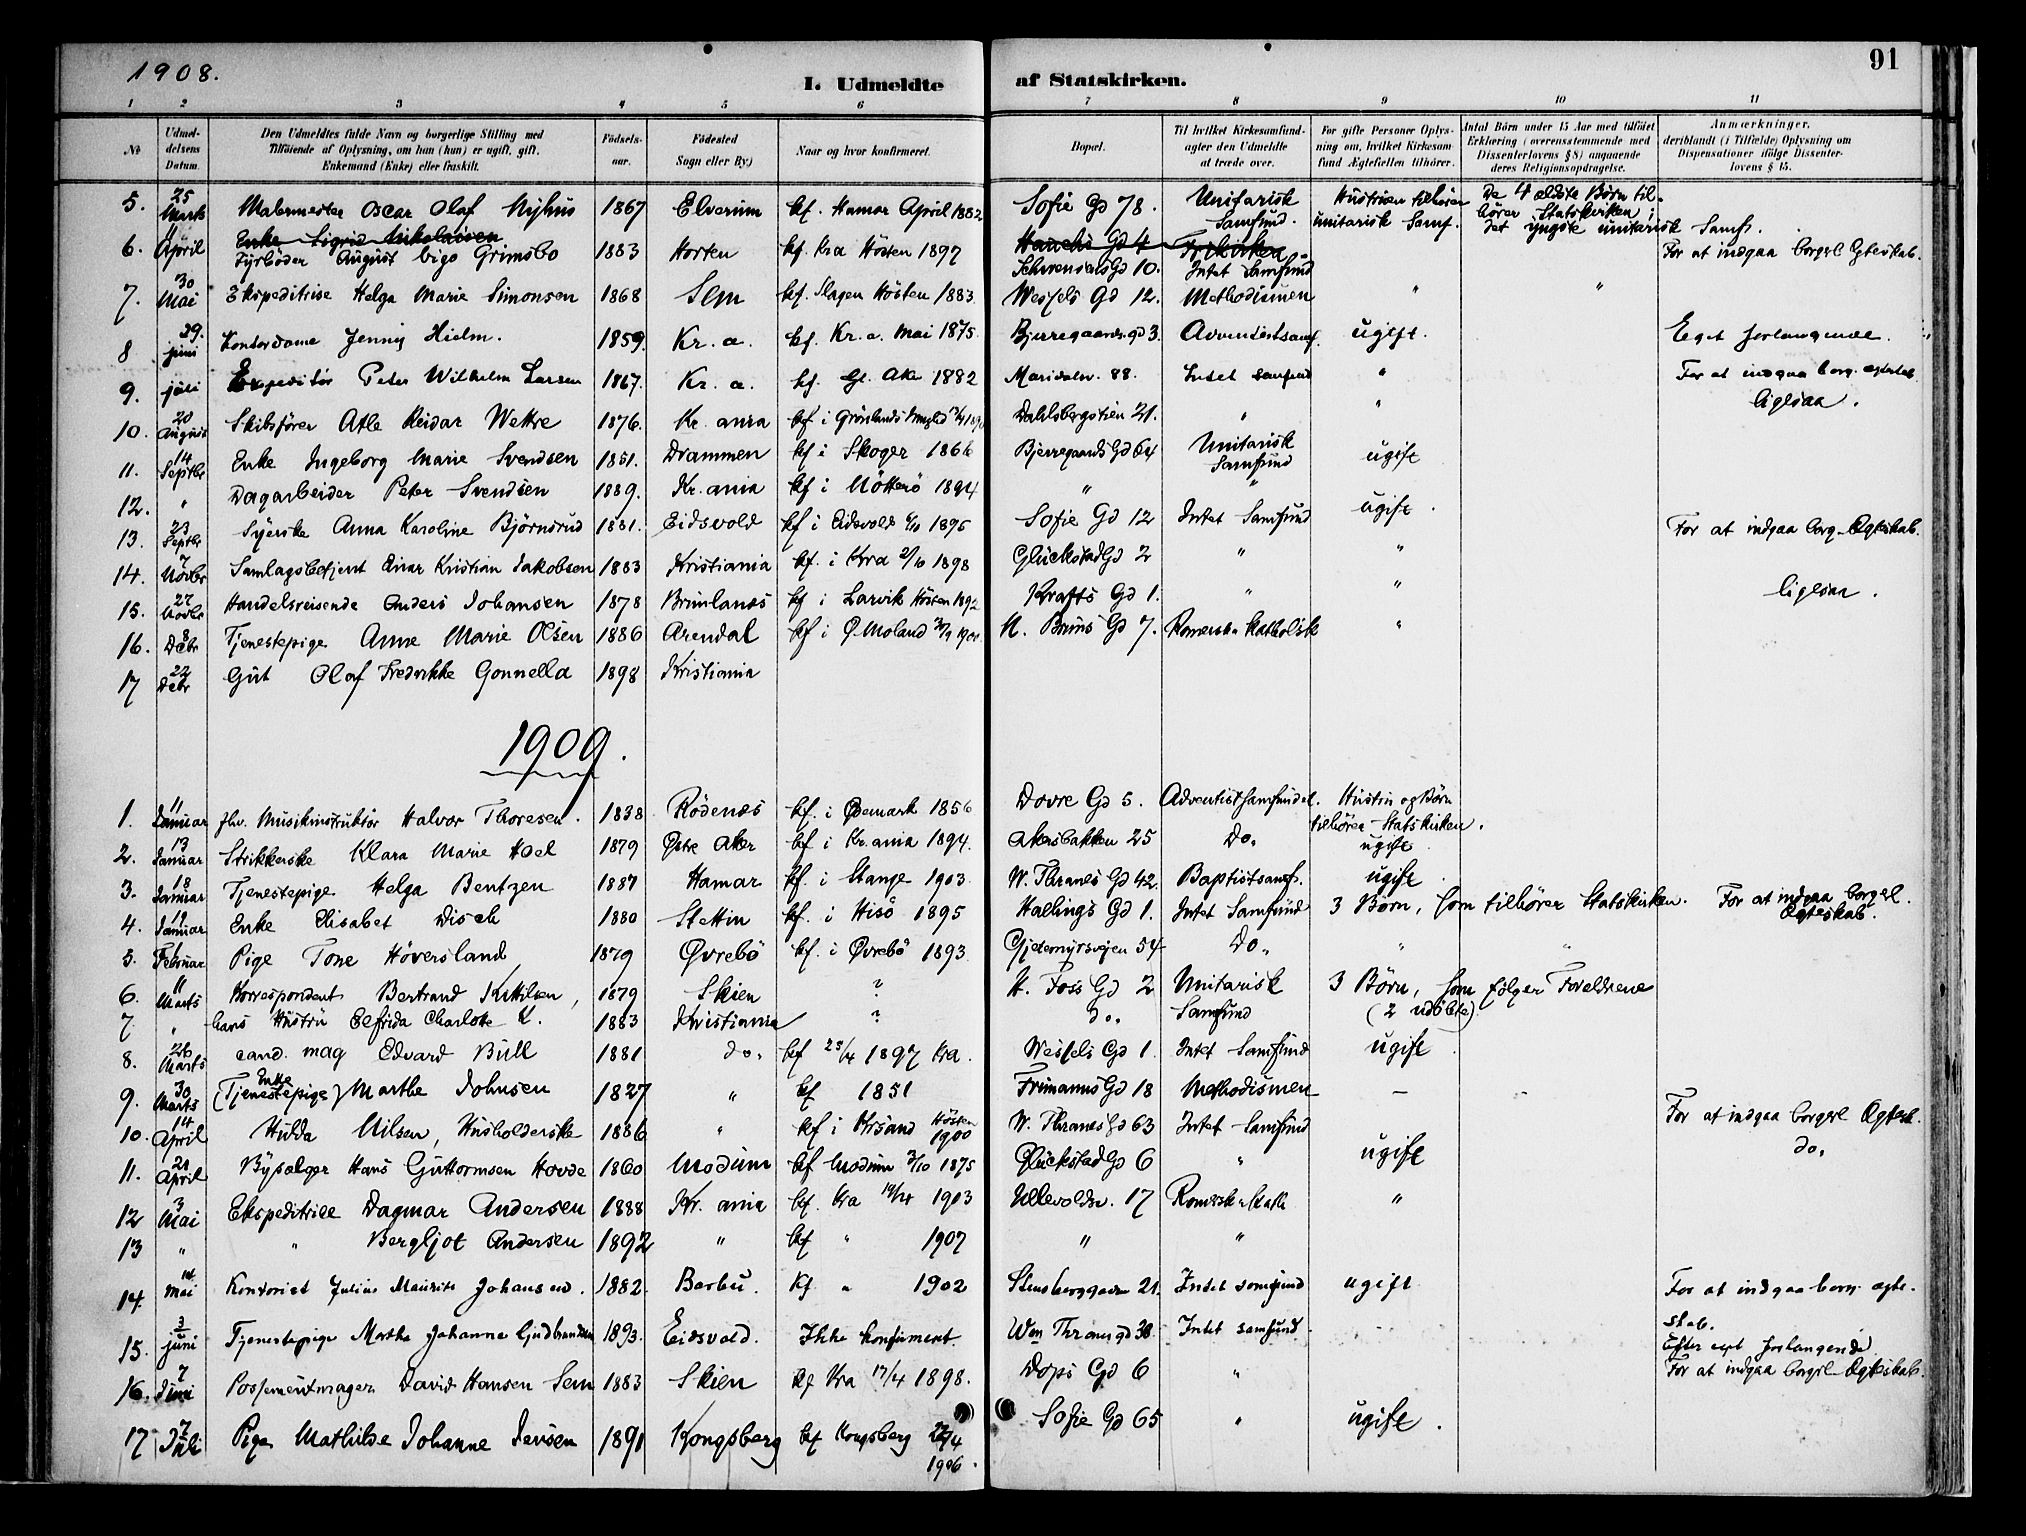 1908.
91
I. Udmeldte af Statskirken.
1 2 3 4 5 6 7 8 9 10 11
№ Udmeldelsens Datum. Den Udmeldtes fulde Navn og borgerlige Stilling med Tilføiende af Oplysning, om han (hun) er ugift, gift, Enkemand (Enke) eller fraskilt. Fødselsaar. Fødested Sogn eller By.) Naar og hvor konfirmeret. Bopæl. Til hvilket Kirkesamfund agter den Udmeldte at træde over. For gifte Personer Oplysning om, hvilket Kirkesamfund Ægtefællen tilhører. Antal Børn under 15 Aar med tilføiet Erklæring (overensstemmende med Dissenterlovens § 8) angaaende deres Religionsopdragelse. Anmærkninger, deriblandt (i Tilfælde) Oplysning om Dispensationer ifølge Dissenterlovens § 15.
5. 25 Marts Malermester Oscar Olaf Nyhus 1867 Elverum kf. Hamar April 1882 Sofie Gd 78. Unitarisk Samfund. Hustruen tilhører unitarisk Samf. De 4 ældste Børn tilhører Statskirken; det yngste unitarisk Samf.
6. April Enke Sigrid Nikolaisen
Fyrbøder August Grimsbo 1883 Horten kf. Kra Høsten 1897 Schwensens Gd 10. Intet Samfund For at indgaa borgerl Ægteskab.
7. 30 Mai Ekspeditrise Helga Marie Simonsen 1868 Sem kf. Slagen Høsten 1883 Wessels Gd 12. Methodismen " "
8 29. juni Kontordame Jenny Hielm. 1859. Kr. a. kf. Kr. a. Mai 1875. Bjerregaards. gd 3. Adventistsamf. ugift. Eget forlangende.
9. juli Expeditør Peter Wilhelm Larsen 1867. Kr. a. kf. Gl. Aker 1882 Maridalsv. 88. Intet samfund " For at indgaa borg. ægtesk
10. 20 August Skibsfører Atle Reidar Wettre 1876. Kr. ania kf i Grønlands Dahlsbergstien 21. " " ligesaa.
11. 14 Septbr Enke Ingeborg Marie Svendsen 1851. Drammen kf i Skoger 1866 Bjerregaards Gd 64 Unitarisk Samfund ugift
12. " Dagarbeider Peter Svendsen 1889. Kr. ania kf i Nøtterø 1894 " " ugift.
13. 23 Septbr Syerske Anna Karoline Bjørnsrud 1881. Eidsvold kf i Eidsvold 1895 Sofie Gd 12 Intet Samfund For at indgaa borg. Ægteskab.
14. 7 Novbr Samlagsbetjent Einar Kristian Jakobsen 1883 Kristiania kf. i Kra 2/10 1898 Glückstad Gd 2 " "
15. 27 Novbr Handelsreisende Anders Johansen 1878 Brunlanes kf i Larvik Høsten 1892 Krafts Gd 1. " " ligesaa.
16. 8 Debr Tjenestepige Anne Marie Olsen 1886 Arendal kf i Ø. Moland N. Bruns Gd 7. Romersk katholsk "
17 22 Debr Gut Olaf Fredrikke Gonnella 1898 Kristiania
1909.
1. 11 Januar fhv. Musikinstruktør Halvor Thoresen. 1838 Rødenæs kf. i Øemark 1856 Dovre Gd 5. Adventistsamfundet. Hustru og Børn tilhører Statskirken.
2. 13 Januar Strikkerske Klara Marie Hoel 1879 Østre Aker kf i Kr. ania 1894. Akersbakken 25 Do. ugift.
3. 18 Januar Tjenestepige Helga Bentzen 1887 Hamar kf. i Stange 1903 W. Thranes Gd 42. Baptistsamf. ugift.
4. 19 Januar Enke Elisabet Disch 1880 Stettin kf. i Hisø 1895 Hallings Gd 1. Intet Samfund 3 Børn, som tilhører Statskirken. For at indgaa borgerl. Ægteskab.
5. 1 Februar Pige Tone Høversland 1879 Øvrebø kf. i Øvrebø 1893 Gjetemyrsveien 54 Do. " "
6. 11 Marts Korrespondent Bertrand Kittilsen, 1879 Skien ? N. Foss Gd 2 Unitarisk Samfund 3 Børn, som følger Forældrene (2 udøbte)
7. " hans Hustru Elfrida Charlotte K. 1883 Kristiania ? do.
8. 26 Marts cand. mag Edvard Bull 1881 do. kf 25/4 1897 Kra. Wessels Gd 1. Intet Samfund ugift.
9. 30 Marts (Tjenestepige) Enke Marthe Johnsen 1827 " kf 1851 Frimanns Gd 18 Methodismen —
10. 14 April Hulda Nilsen, Husholderske 1886 " kf i Krsand Høsten 1900 W. Thranes Gd 63 Intet Samfund For at indgaa borgerl Ægtesk.
11. 21 April Bysælger Hans Guttormsen Hovde 1860 Modum kf Modum 3/10 1875 Glückstad Gd 6 " ugift do.
12 3 Mai Ekspeditrice Dagmar Andersen 1888 Kr. ania kf. Kra 19/4 1903 Ullevoldsv. 17 Romersk Kath "
13 " " Bergljot Andersen 1892 " kf " 1907 " "
14. Mai Kontorist Julius Mauritz Johansen. 1882. Barbu. kf " 1902 Stensberggaden 21. Intet samfund ugift For at indgaa borg. ægteskab.
15. 3 juni Tjenestepige Martha Johanna Gudbrandsen 1893. Eidsvold. Ikke konfirmert. Wm Thranes gd 38. Intet samfund. Efter eget forlangende
16. 7 Juni Possementmager David Hansen Sem 1883 Skien kf Kra 17/4 1898. Dops Gd 6 " For at indgaa borgerl. Ægteskab.
17 2 Juli Pige Mathilde Johanne Jensen 1891 Kongsberg kf Kongsberg 22/4 1906. Sofie Gd 65 " ugift.